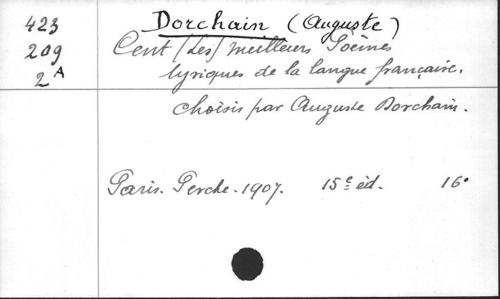 423
209
2A
Dorchain (Auguste)
Cent (Les) meilleurs Poèmes
lyriques de la langue française.
choisis par Auguste Dorchain.
Paris. Perche. 1907. 15e éd. 16°